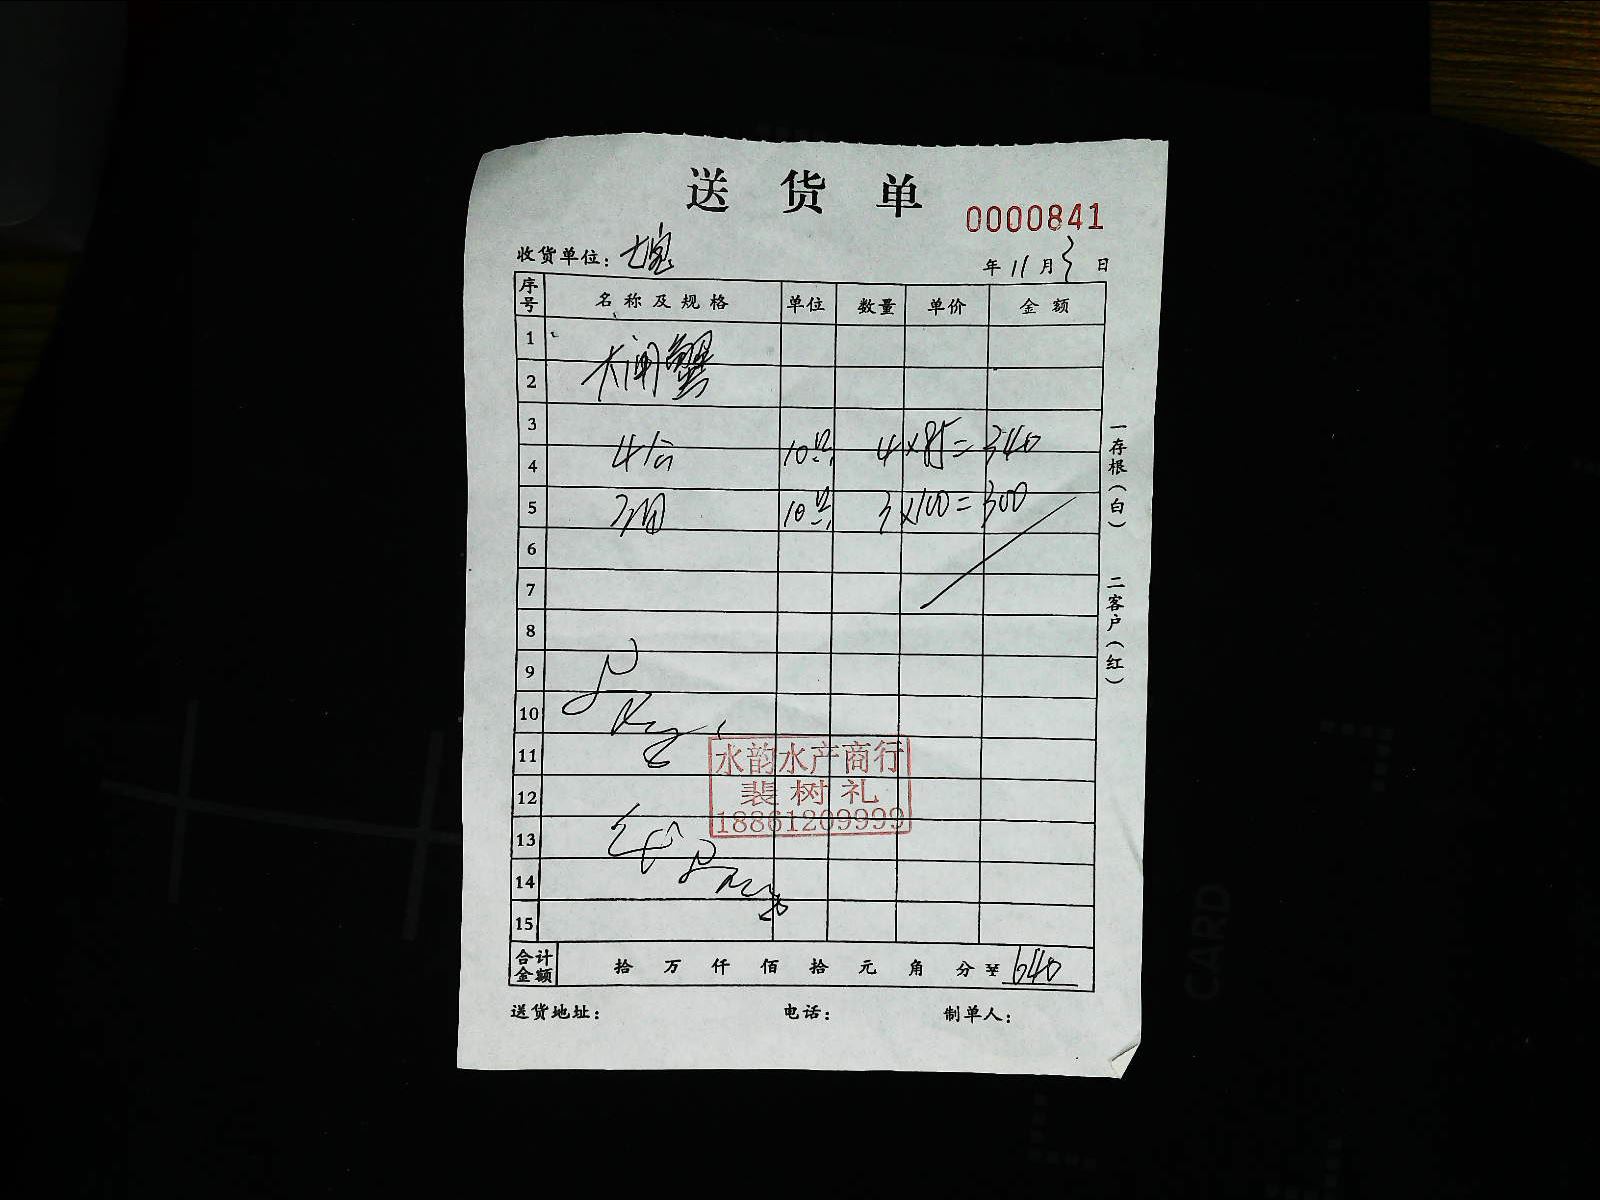 送货单
0000841
收货单位：七宝
年 11 月 3 日
序号 名称及规格 单位 数量 单价 金额
1
2 大闸蟹
3
4 4公 10只 4 × 85 = 340
5 10只 3 × 100 = 300
6
7
8
9
10
11
12
13
14
15
水韵水产商行
裴树礼
18861209999
合计金额 拾 万 仟 佰 拾 元 角 分 ¥ 640
送货地址： 电话： 制单人：
一存根（白） 二客户（红）
CARD